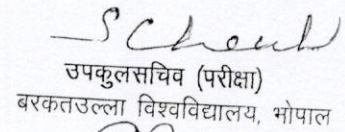 उपकुलसचिव (परीक्षा)
बरकतउल्ला विश्वविद्यालय, भोपाल